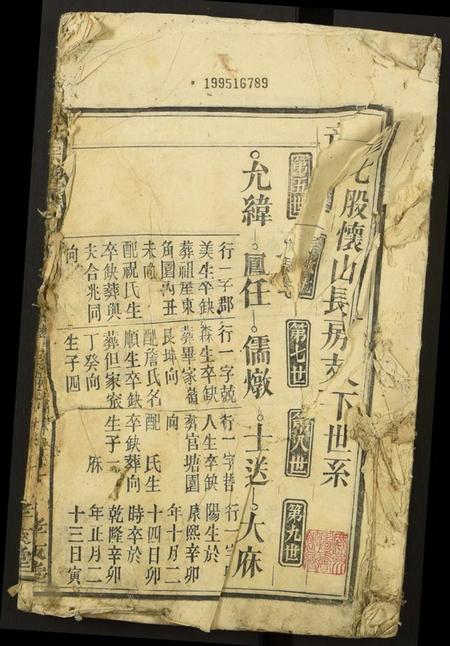 199516789
七股懷山長房支下世系
第五世
第七世
第八世
第九世
允緯 鳳任 儒燉 士送 大麻
行一字郡 行一字兢 行一字哲 行一字
美生卒缺 森生卒缺 人生卒缺 陽生於
葬祖屋東 葬畢家嶺 葬官塘園 康熙辛卯
角圍內丑 艮坤向 向 年十月二
未向 配詹氏名 配 氏生 十四日卯
配祝氏生 順生卒缺 卒缺葬向 時卒於
卒缺葬與 葬但家寮 生子二 乾隆辛卯
夫合兆同 丁癸向 麻 年正月二
向 生子四 十三日寅